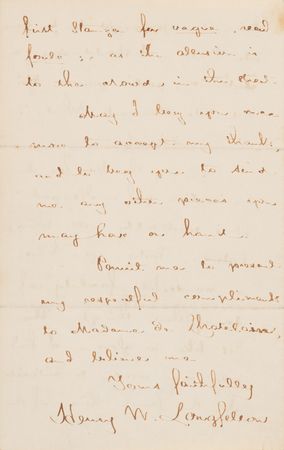 first stanza for vague, read
foule; as the allusion is
to the crowds in the
May I beg you now
more to accept my thanks,
and to beg you to send
me any other pieces you
may have on hand.
Permit me to present
my respectful compliments
to Madame de Chatelain,
and believe me
Yours faithfully
Henry W. Longfellow